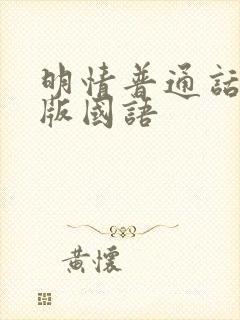 明情普通話
版國語
黃懷